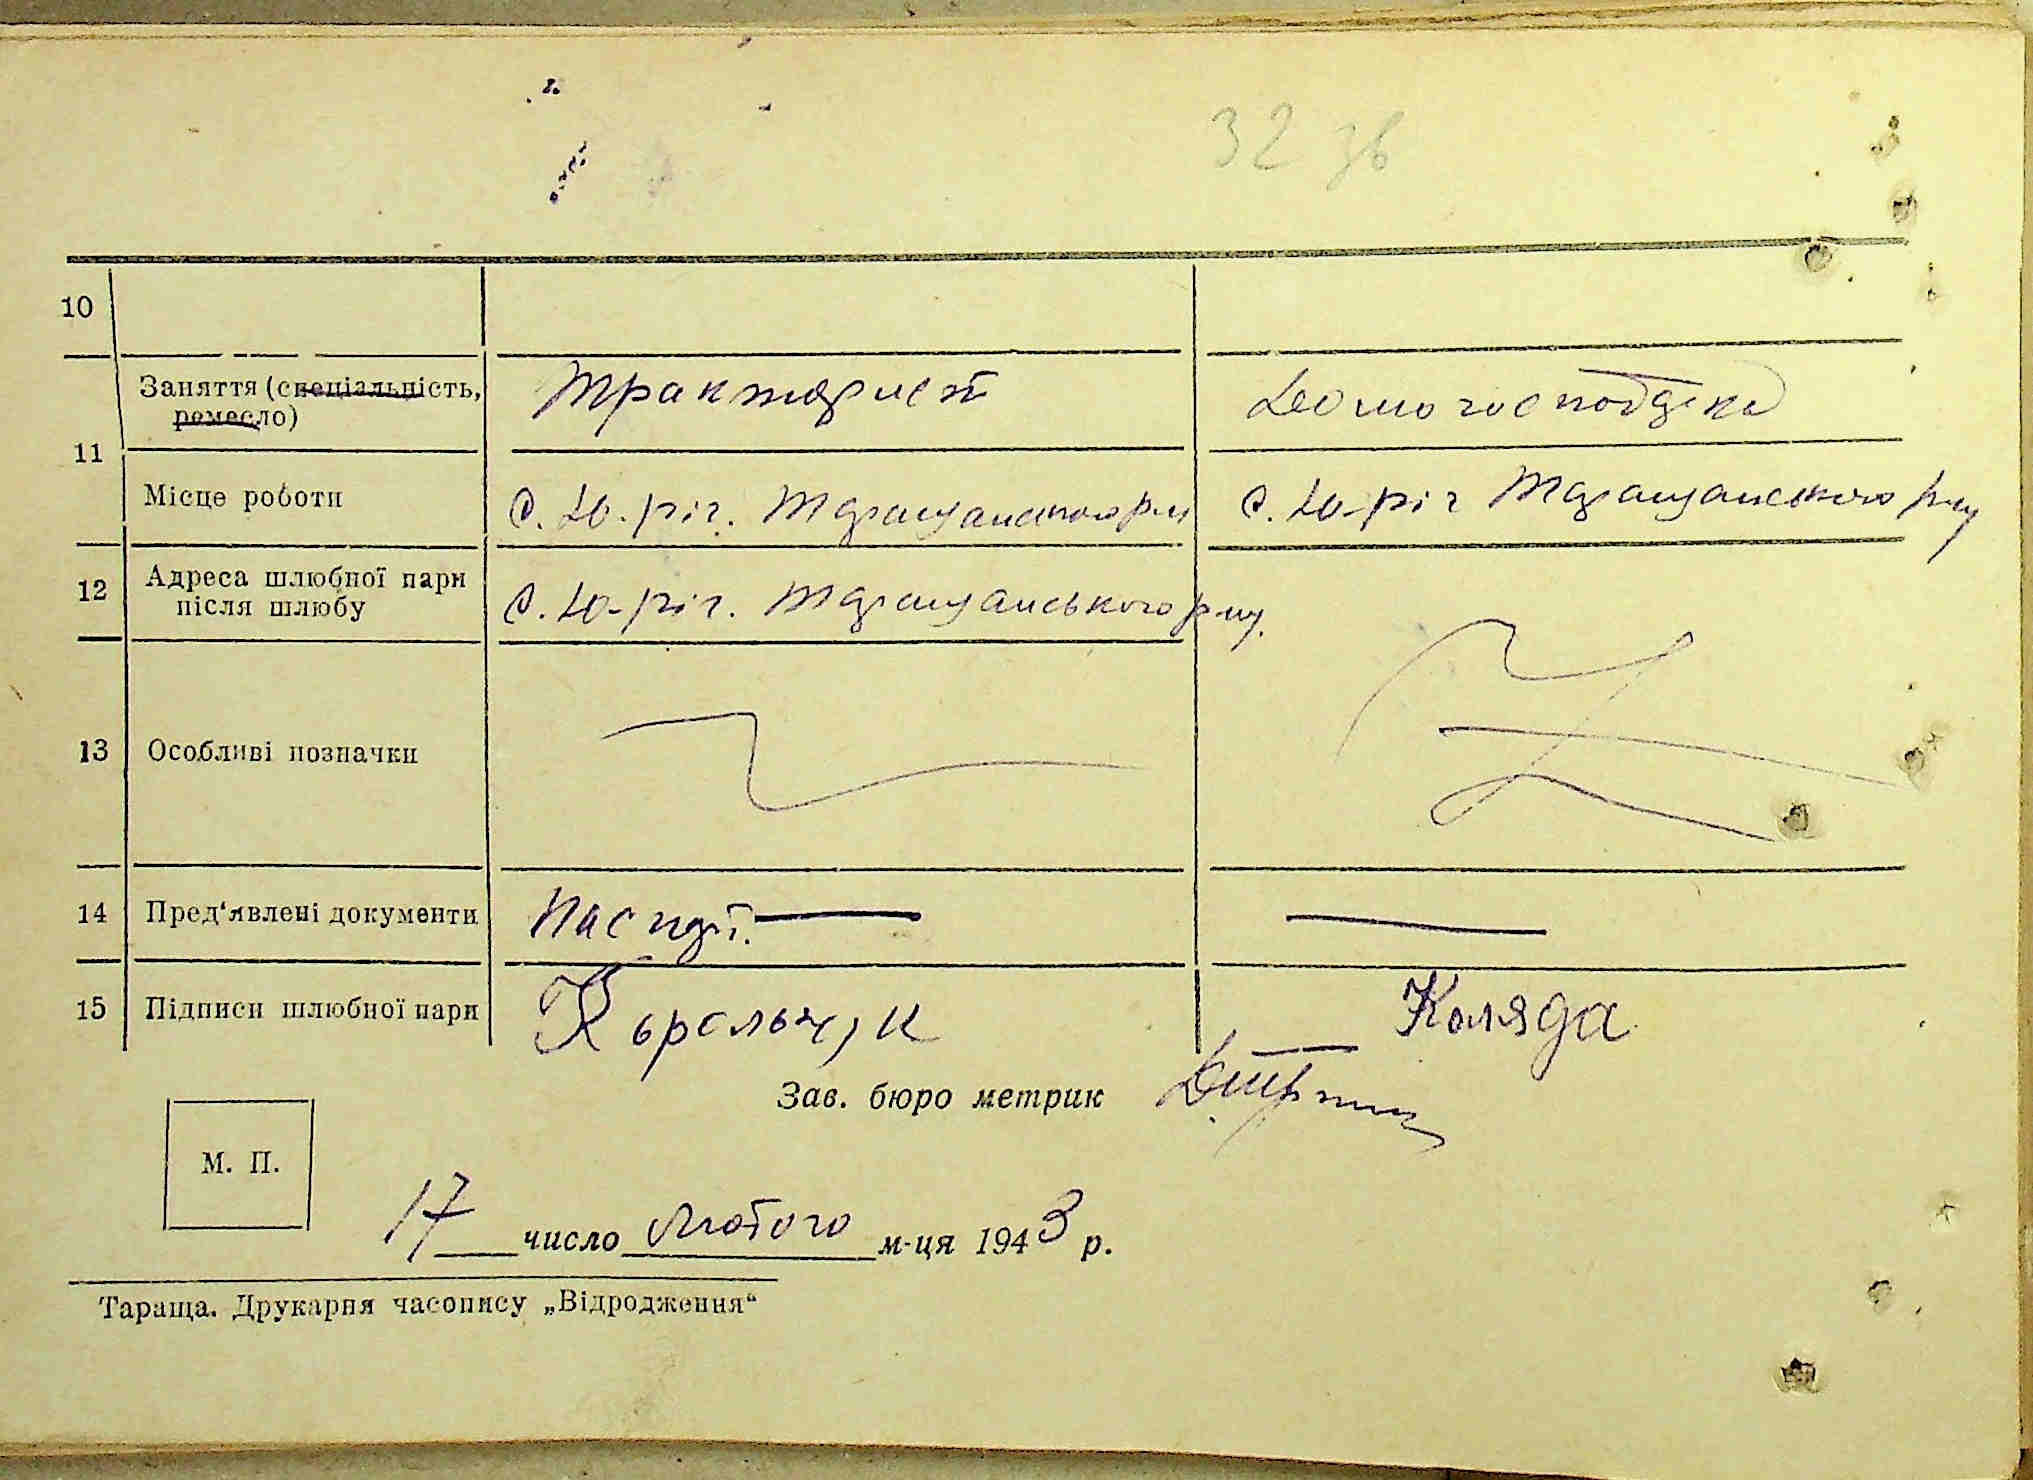 32 зв
10
Заняття (спеціальність, ремесло) Тракторист Домогосподарка
11
Місце роботи с. Ю-ріг. Таращанського р-ну с. Ю-ріг Таращанського р-ну
12 Адреса шлюбної пари
після шлюбу с. Ю-ріг. Таращанського р-ну.
13 Особливі позначки
14 Пред'явлені документи Паспорт.
15 Підписи шлюбної пари Корольчук Коляда
Зав. бюро метрик
М. П.
17 число Лютого м-ця 1943 р.
Тараща. Друкарня часопису „Відродження“